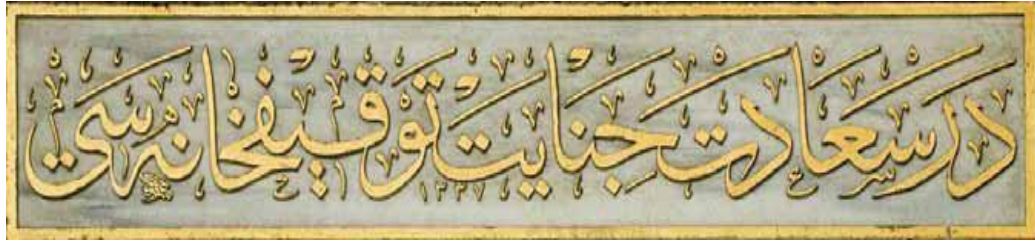 درسعادت جنايت توقيفخانه سى
١٣٣٧